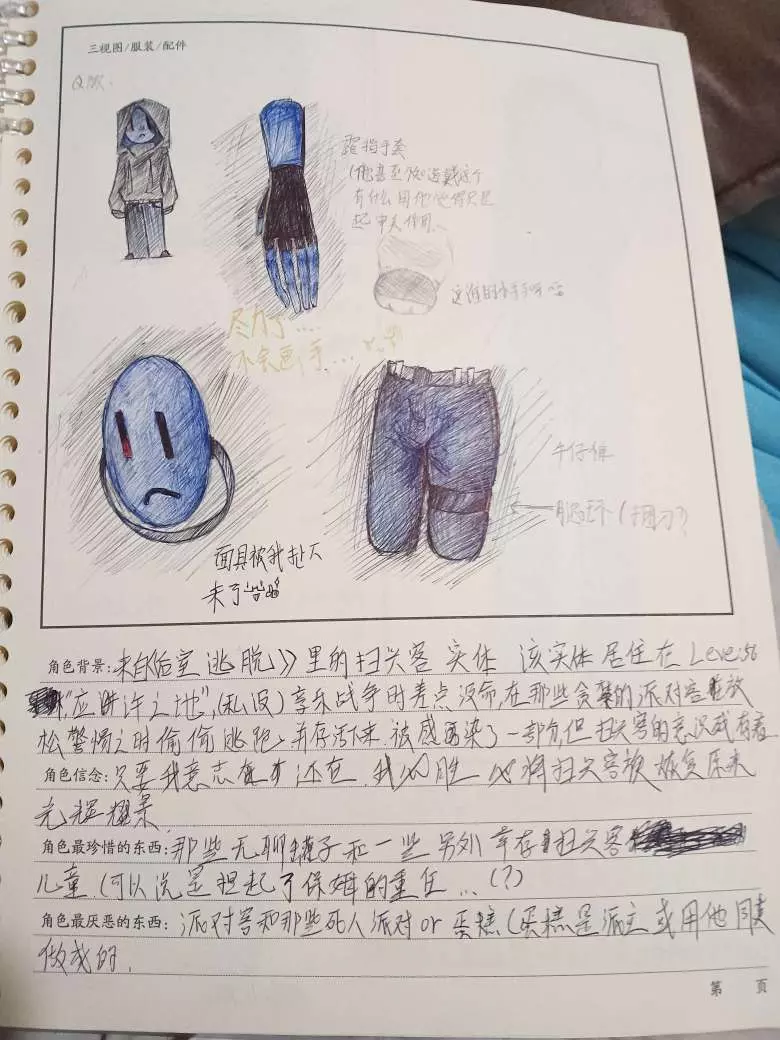 三视图/服装/配件
Q版.
露指手套
(他甚至不知道戴这个
有什么用他觉得只是
起中二作用、
这谁的
尽力了....
不会画手...
牛仔裤
腿环(捆刀?
面具被我扯下
来了
角色背景:来自《后室逃脱》里的扫兴客 实体 该实体居住在 Level
"应许之地",(私设)享乐战争时差点没命,在那些贪婪的派对客放
松警惕之时偷偷逃跑 并存活下来.被感染了一部分,但扫兴客的意识
角色信念:只要我意志还在.我必胜 必将扫兴客族 恢复原来
光辉耀景.
角色最珍惜的东西:那些无聊罐子和一些另外幸存扫兴客
儿童.(可以说是担起了保姆的重任...(?)
角色最厌恶的东西:派对客和那些死人派对or 蛋糕(蛋糕是派主 或用他同
做成的.
第 页